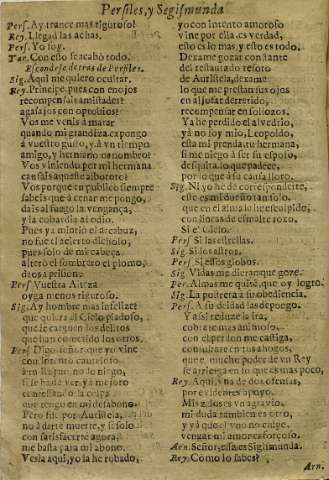 Persiles, y Segismunda
Pers. Ay trance mas rigoroso!
Rey. Llegad las achas.
Pers. Yo soy.
Con esto se acabò todo.
Escondese detras de Persiles.
Sig. Aqui me quiero ocultar.
Rey. Principe, pues con enojos
recompensais amistades?
agasajos con oprobios?
Vos me venis à matar
quando mi grandeza expongo
à vuestro gusto, y à vn tiempo
amigo, y hermano os nombro?
Vos viniendo por mi hermana
causais aqueste alboroto?
Vos porque en publico siempre
sabeis que à cenar me pongo,
dais al fuego la vengança,
y la cobardia al odio.
Pues ya mintio el arcabuz,
no fue el acierto dichoso,
pues solo de mi cabeça
alterò el sombrero el plomo,
daos à prision.
Pers. Vuestra Alteza
oyga menos rigoroso.
Sig. Ay hombre mas infelize!
que quiera el Cielo piadoso,
que me carguen los delitos
que han cometido los otros.
Pers. Digo señor, que yo vine
con intento cauteloso
à tu Reyno, no lo niego,
si se ha de ver, y à mejoro
confessando la culpa
que tengo en vuestro abono.
Pero fue por Auristela,
no à darte muerte, y si solo
con satisfacerte agora,
me basta para mi abono.
Vesla aqui, yo la he robado,
yo con intento amoroso
vine por ella, es verdad,
esto es lo mas, y esto es todo.
Dexame gozar constante
del restaurado tesoro
de Auristela, dexame
lo que me prestan sus ojos
en aljofar derretido,
recompensar en sollozos.
Ya he perdido el alvedrio,
yà no soy mio, Leopoldo,
esta mi prenda, tu hermana,
si me niego à ser su esposo,
desquita lo que padece,
por lo que à su causa lloro.
Sig. Ni yo he de corresponderte,
este es mi dueño tan solo,
que en el alma le he esculpido,
con lineas de esmalte roxo.
Si el Cielo.
Pers. Si las estrellas.
Sig. Si los astros.
Pers. Si essos globos.
Sig. Vidas me dieran que goze.
Pers. Almas me quite, que oy logro.
Sig. La postrera à su obediencia.
Pers. A su deidad las depongo.
Y assi reduze la ira,
cobra lo mas animoso,
con el perdon me castiga,
con
que es mucho poder de vn Rey
se arriesga en lo que es mas poco,
Rey. Aqui, y na de dos ofensas,
por evidentes apoyo.
Mis zelos es vn agravio,
mi duda tambien es otro,
y yà que el vno no culpe,
vengar mi amor es forçoso.
Arn. Señor, essa es Sigismunda.
Rey. Como lo sabes?
Arn.